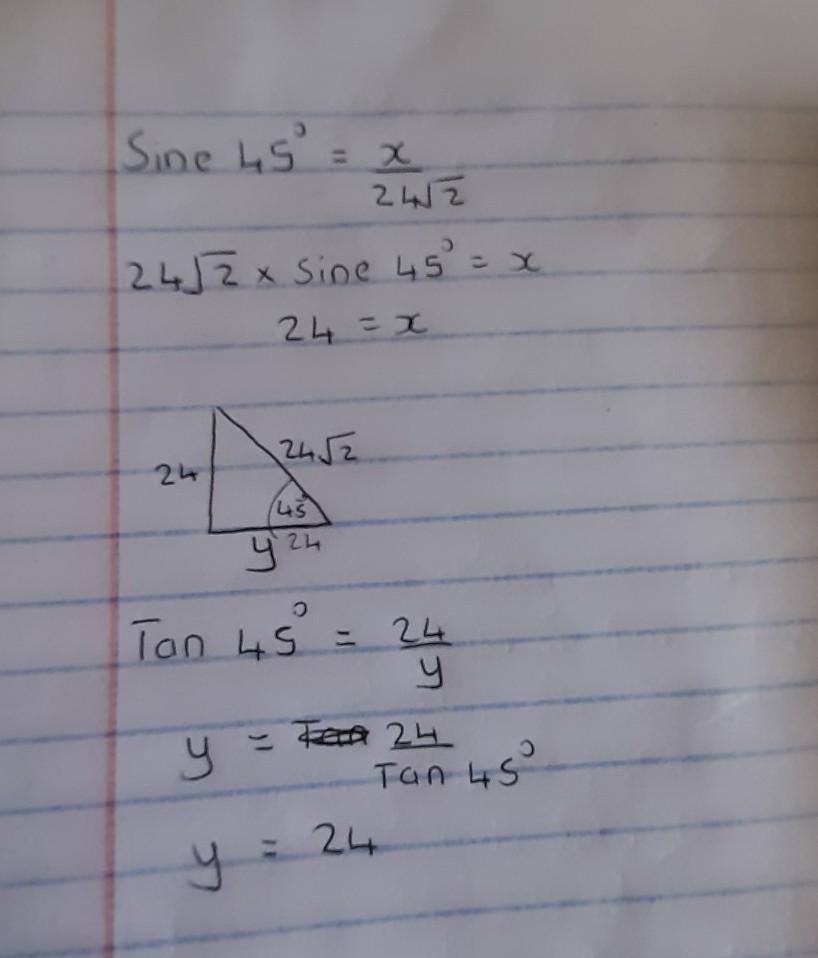 Sine 45° = x
24√2
24√2 × Sine 45° = x
24 = x
24√2
24
45°
y 24
Tan 45° = 24
y
y = 24
Tan 45°
y = 24